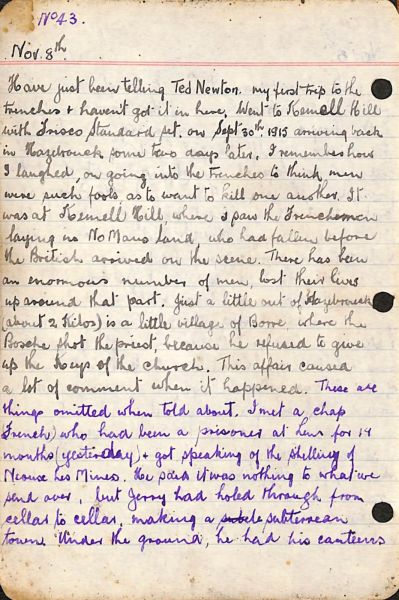 No 43.
Nov. 8th.
Have just been telling Ted Newton. my first trip to the
trenches + haven't got it in here. Went to Kemell Hill
with Frisco Standard set. on Sept 30th. 1915 arriving back
in Hazebrouck some two days later. I remember how
I laughed, on going into the trenches to think, men
were such fools as to want to kill one another. It
was at Kemell Hill, where I saw the Frenchmen
laying in No Mans Land who had fallen before
the British arrived on the scene. There has been
an enormous number of men, lost their lives
up around that part. Just a little out of Hazebrouck
(about 2 Kilos) is a little village of Borre, where the
Bosche shot the priest, because he refused to give
up the Keys of the church. This affair caused
a lot of comment when it happened. These are
things omitted when told about. I met a chap
French) who had been a prisoner at Lens for 14
months (yesterday) + got speaking of the shelling of
Neouse les Mines. He said it was nothing to what we
send over, but Jerry had holed through from
cellar to cellar, making a subterrean
town. Under the ground, he had his canteens